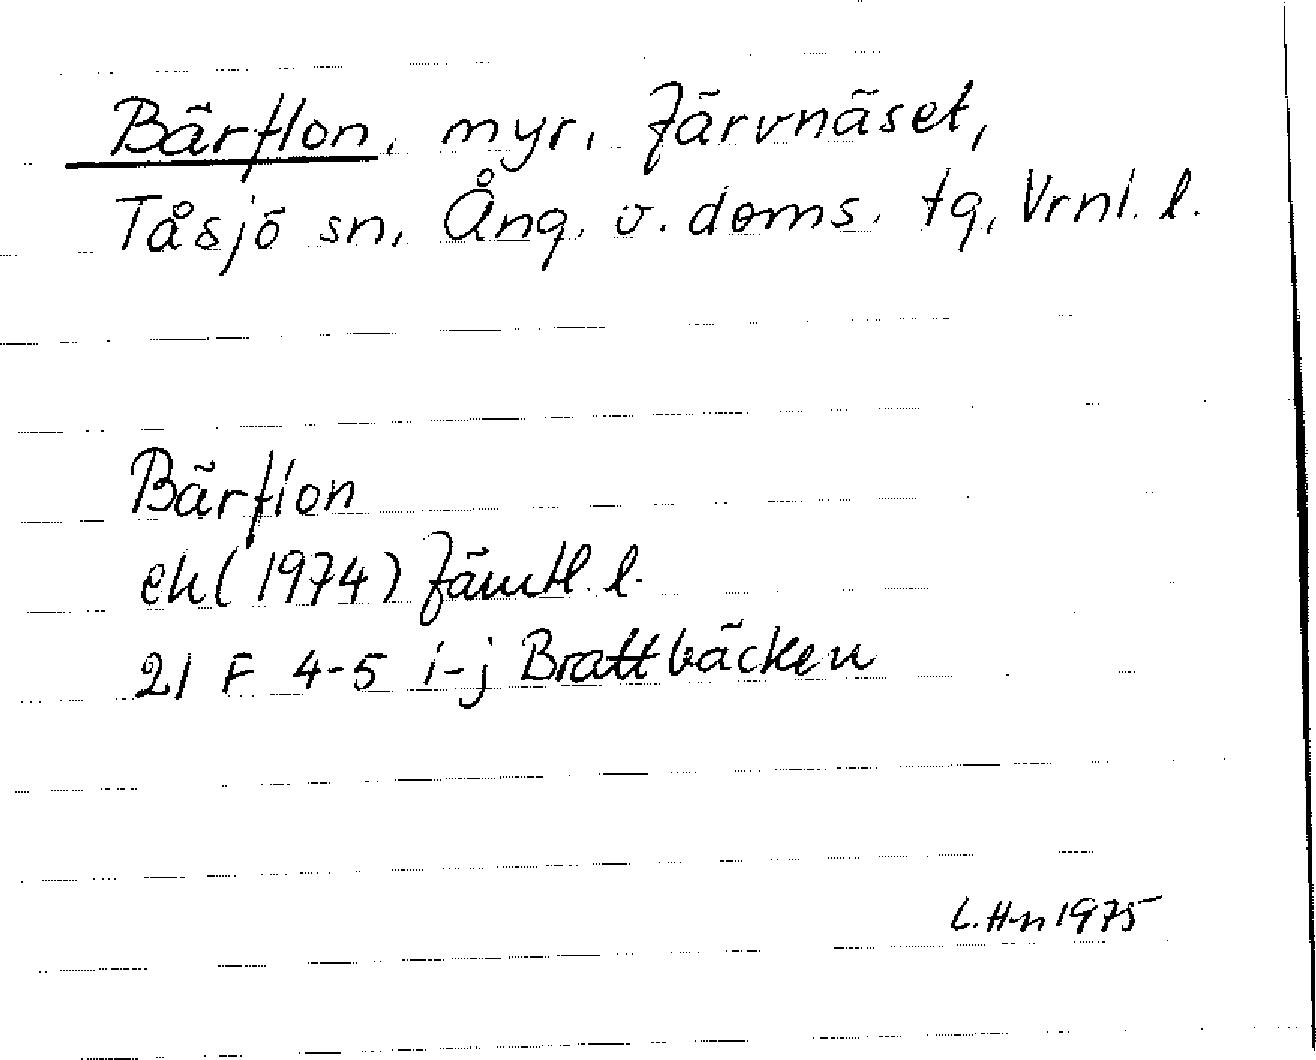 Bärflon, myr, Järvnäset,
Tåsjö sn, Ång. v. doms. tg, Vrnl. l.
Bärflon
ek (1974) Jämtl. l.
21 F 4-5 i-j Brattbäcken
L. H-n 1975